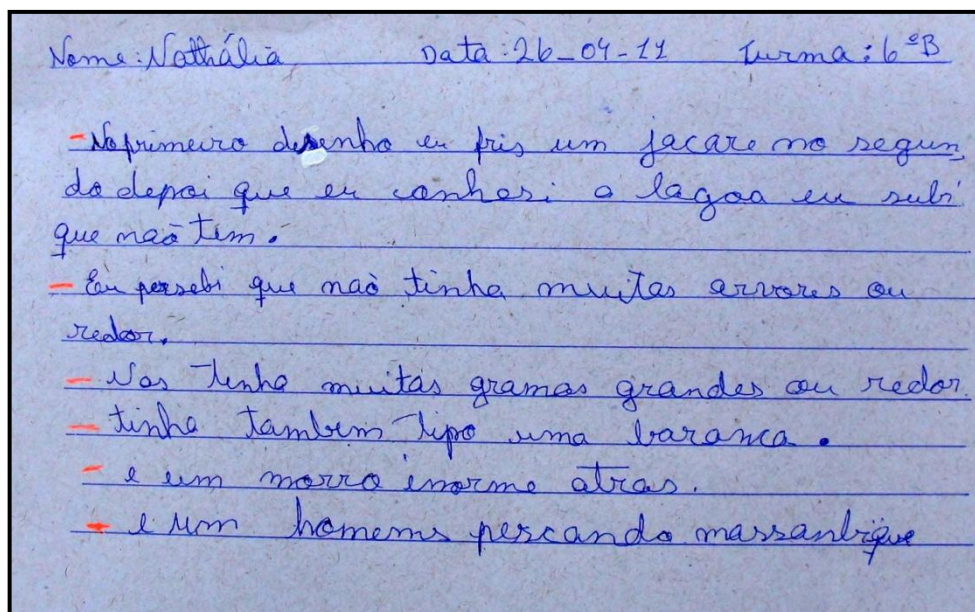 Nome: Nathália Data: 26-04-11 Turma: 6ºB
- No primeiro desenho eu fris um jacare no segun
do depoi que eu conhesi a lagoa eu subi
que naõ tem.
- Eu persebi que naõ tinha muitas arvores ou
redor.
- Nos tinha muitas gramas grandes ou redor.
- tinha tambem tipo uma baranca.
- e um morro enorme atras.
- e um homems pescando massanbique